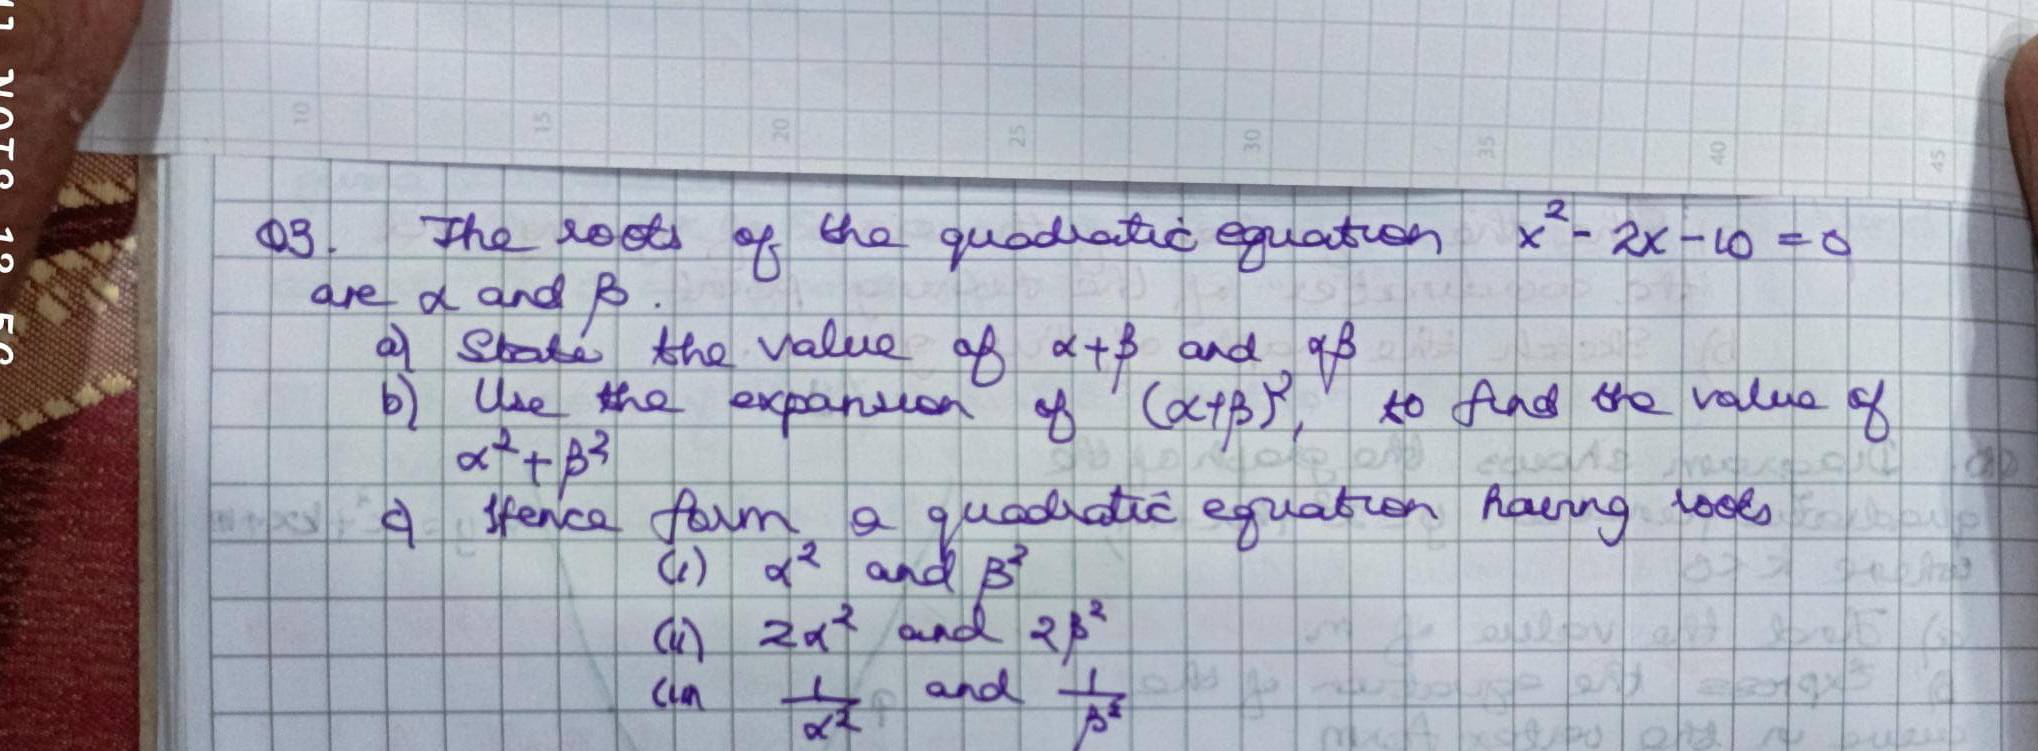 10 15 20 25 30 35 40 45
Q3. The roots of the quadratic equation x² - 2x - 10 = 0
are α and β.
a) State the value of α+β and αβ
b) Use the expansion of (α+β)², to find the value of
α² + β²
c) Hence form a quadratic equation having roots
(i) α² and β²
(ii) 2α² and 2β²
(iii) 1/α² and 1/β²